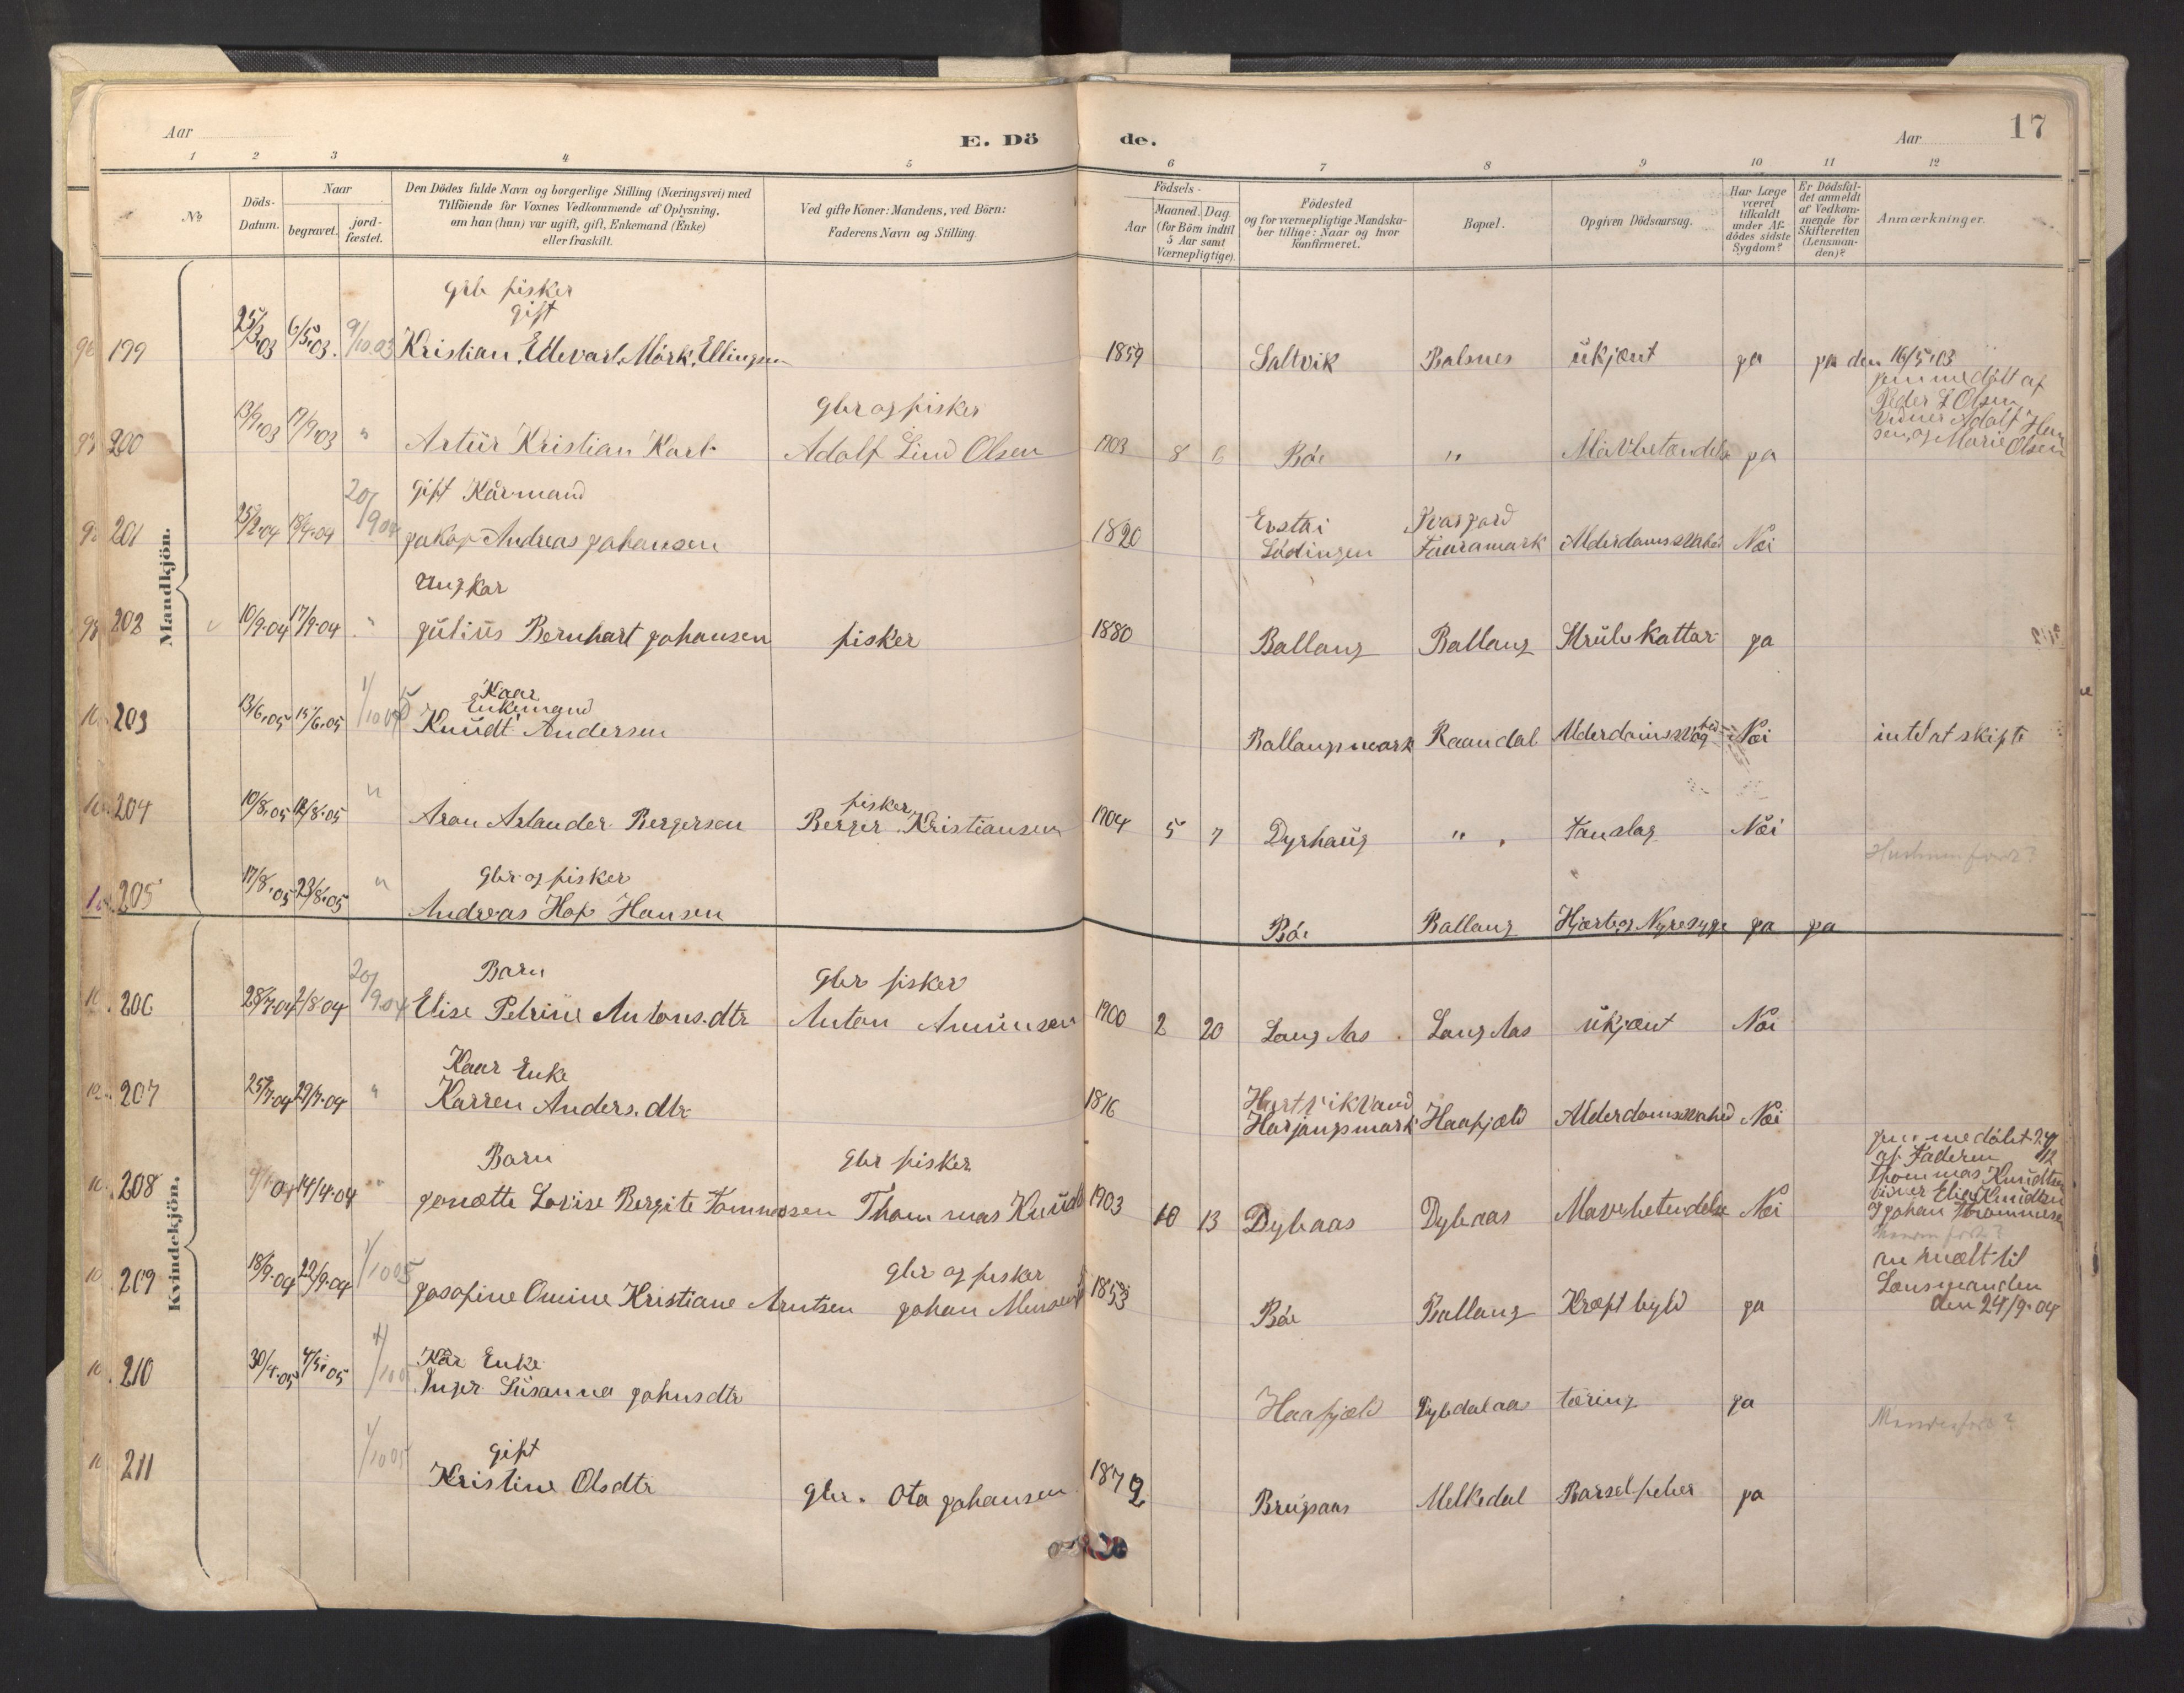 Aar
E. Dö
de.
Aar
17
1 2 3 4 5 6 7 8 9 10 11 12
No
Döds-Datum.
Naar
begravet.
jord-fæstet.
Den Dödes fulde Navn og borgerlige Stilling (Næringsvei) med
Tilföiende for Voxnes Vedkommende af Oplysning,
om han (hun) var ugift, gift, Enkemand (Enke)
eller fraskilt.
Ved gifte Koner: Mandens, ved Börn:
Faderens Navn og Stilling.
Födsels-
Aar
Maaned.
Dag.
(for Börn indtil
5 Aar samt
Værnepligtige).
Födested
og for værnepligtige Mandska-
ber tillige: Naar og hvor
konfirmeret.
Bopæl.
Opgiven Dödsaarsag.
Har Læge
været
tilkaldt
under Af-
dödes sidste
Sygdom?
Er Dödsfal-
det anmeldt
af Vedkom-
mende for
Skifteretten
(Lensman-
den)?
Anmærkninger.
Mandkjön.
gbr fisker
gift
199 6/5.03. 9/10.03 Kristian. Edevart. Mörk. Ellingsen 1859 Saltvik Balsnes ükjent ja ja den 16/5.03
jenmedölt af
Peder L Olsen
Vidner Adolf Han
sen, og Marie Olsen
gbr og fisker
200 13/9.03 17/9.03 " Artür Kristian Karl Adolf Lind Olsen 1903 8 6 Böe " Mavbetendelse ja
gift Kårmand
201 25/2.04 20/9.04 jakop Andreas johansen 1820 Evstri Lödingen Faaramark Alderdomssvahed Nei
Ungkar
202 10/9.04 17/9.04 " jülius Bernhart johansen fisker 1880 Ballang Ballang Strüb Kattar ja
Kaar
Enkemand
203 13/6.05 15/6.05 1/10 05 Knüdt Andersen Ballangsmark Raandal Alderdomssvaghed Nei intet at skifte
fisker
204 10/8.05 12/8.05 " Aron Arlander Bergersen Berger Kristiansen 1904 5 7 Dyrhaüg " Tanslag Nei
gbr og fisker
205 17/8.05 23/8.05 " Andreas Hop Hansen Böe Ballang Hjerte og Nyresyge ja ja
Kvindekjön.
Barn
gbr fisker
206 28/7.04 2/8.04 20/9.04 Elise Petrine Antons.dtr Anton Amünsen 1900 2 20 Lang Aas Lang Aas ükjent Nei
Kaar Enke
207 25/7.04 29/7.04 " Karren Anders.dtr 1816 Hartvikvand Harjangsmark Haafjeld Alderdomssvahed Nei
Barn
gbr fisker
208 14/4.04 " jenette Lovise Bergite Tommasen Thommas Knüdt 1903 10 13 Dybaas Dybaas Mavebetendelse Nei
jenmedölt 24/12
af Faderen
Thommas Knudtsen
viner Elia Knüdtsen
og johan Thommesen
gbr og fisker
209 18/9.04 22/9.04 1/10 05 josefine Omine Kristiane Arntsen johan Monsen 1853 Böe Ballang Kreft byld ja
anmelt til
Lensmanden
den 24/9.04
Kår Enke
210 30/4.05 4/5.05 1/10 05 Inger Süsanna johnsdtr Haafjeld Dybdalaas tæring ja
gift
211 1/10 05 Kristine Olsdtr gbr. Ota johansen 1872 Brügsaas Melkedal Barselfeber ja